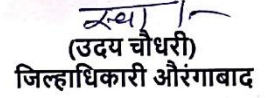 स्वा/-
(उदय चौधरी)
जिल्हाधिकारी औरंगाबाद